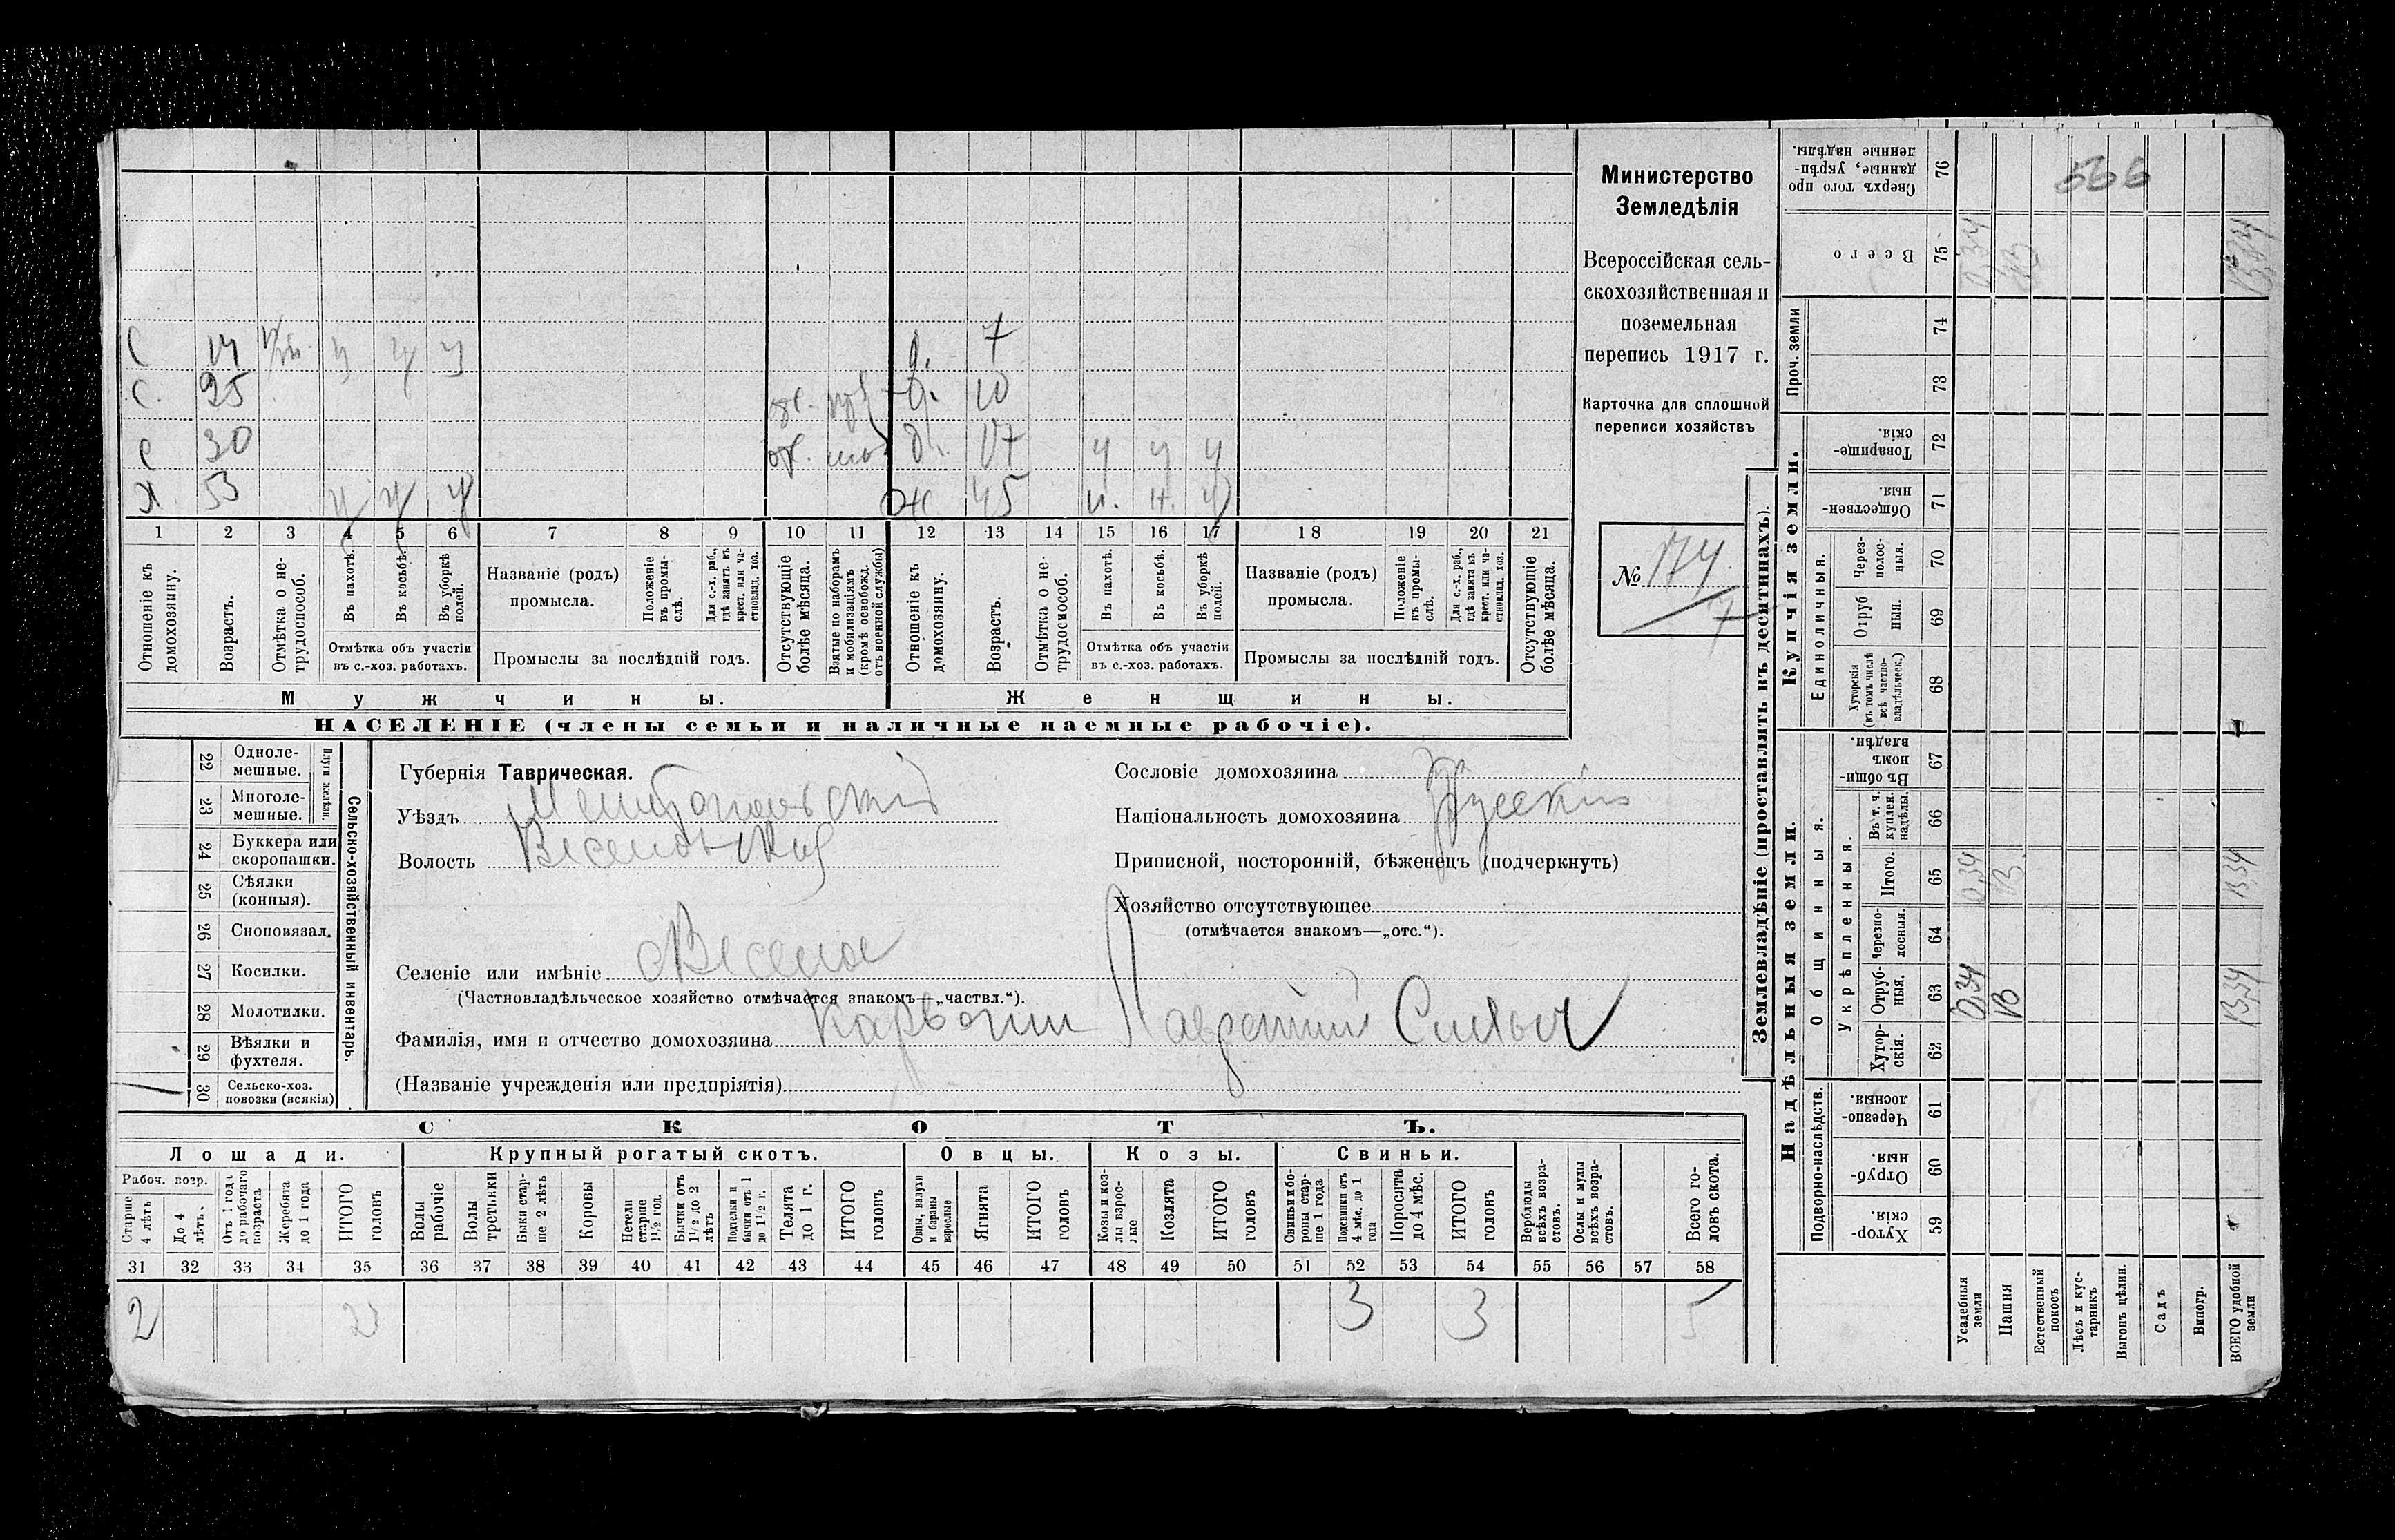 Министерство
Земледѣлія
Всероссійская сель-
скохозяйственная и
поземельная
перепись 1917 г.
Карточка для сплошной
переписи хозяйствъ
№ 174
7
С 14 у у у д. 7
С. 25 д. 10
С 30 д. 17 у у у
Х 53 у у у ж 45 у. у. у
1 2 3 4 5 6 7 8 9 10 11 12 13 14 15 16 17 18 19 20 21
Отношеніе къ домохозяину.
Возрастъ.
Отмѣтка о не-
трудоспособ.
Въ пахотѣ.
Въ косьбѣ.
Въ уборкѣ полей.
Отмѣтка объ участіи
въ с.-хоз. работахъ.
Названіе (родъ)
промысла.
Положеніе въ промы-
слѣ.
Для с.-х. раб.,
гдѣ занятъ въ
крест. или ча-
стновлад. хоз.
Промыслы за послѣдній годъ.
Отсутствующіе
болѣе мѣсяца.
Взятые по наборамъ
и мобилизаціямъ
(кромѣ освобожд.
отъ военной службы)
Отношеніе къ
домохозяину.
Возрастъ.
Отмѣтка о не-
трудоспособ.
Въ пахотѣ.
Въ косьбѣ.
Въ уборкѣ полей.
Отмѣтка объ участіи
въ с.-хоз. работахъ.
Названіе (родъ)
промысла.
Положеніе въ промы-
слѣ.
Для с.-х. раб.,
гдѣ занята въ
крест. или ча-
стновлад. хоз.
Промыслы за послѣдній годъ.
Отсутствующіе
болѣе мѣсяца.
Мужчины.
Женщины.
НАСЕЛЕНІЕ (члены семьи и наличные наемные рабочіе).
Сельско-хозяйственный инвентарь.
Плуги желѣзн.
22 Одноле-
мешные.
23 Многоле-
мешные.
24 Буккера или
скоропашки.
25 Сѣялки
(конныя).
26 Сноповязал.
27 Косилки.
28 Молотилки.
29 Вѣялки и
фухтеля.
30 Сельско-хоз.
повозки (всякія)
1
Губернія Таврическая.
Уѣздъ Мелитопольскій
Волость Веселовская
Селеніе или имѣніе Веселое
(Частновладѣльческое хозяйство отмѣчается знакомъ—„частвл.“).
Фамилія, имя и отчество домохозяина Лаврентий
(Названіе учрежденія или предпріятія)
Сословіе домохозяина
Національность домохозяина Русскій
Приписной, посторонній, бѣженецъ (подчеркнуть)
Хозяйство отсутствующее
(отмѣчается знакомъ—„отс.“).
СКОТЪ.
Лошади.
Крупный рогатый скотъ.
Овцы.
Козы.
Свиньи.
Рабоч. возр.
Старше
4 лѣтъ
До 4
лѣтъ.
Отъ 1 года
до рабочаго
возраста
Жеребята
до 1 года
ИТОГО
головъ
Волы
рабочіе
Волы
третьяки
Быки стар-
ше 2 лѣтъ
Коровы
Нетели
старше
1½ год.
Бычки отъ
1½ до 2
лѣтъ
Подтелки и
бычки отъ 1
до 1½ г.
Телята
до 1 г.
ИТОГО
головъ
Овцы, валухи
и бараны
взрослые
Ягнята
ИТОГО
головъ
Козы и коз-
лы взрос-
лые
Козлята
ИТОГО
головъ
Свиньи и бо-
ровы стар-
ше 1 года
Подсвинки отъ
4 мѣс. до 1
года
Поросята
до 4 мѣс.
ИТОГО
головъ
Верблюды
всѣхъ возра-
стовъ.
Ослы и мулы
всѣхъ возра-
стовъ.
Всего го-
ловъ скота.
31 32 33 34 35 36 37 38 39 40 41 42 43 44 45 46 47 48 49 50 51 52 53 54 55 56 57 58
2 2 3 3 5
Землевладѣніе (проставлять въ десятинахъ).
Надѣльныя земли.
Купчія земли.
Проч. земли
Общинныя.
Укрѣпленныя.
Единоличныя.
Подворно-наслѣдств.
Сверхъ того про
данные, укрѣп-
ленные надѣлы.
76
566
Всего
75
0,34 13 13,34
74
73
Товарище-
скія.
72
Обществен-
ныя.
71
Через-
полос-
ныя.
70
Отруб
ныя.
69
Хуторскія
(въ томъ числѣ
всѣ частно-
владѣльческ.)
68
Въ общин-
номъ
владѣн.
67
Въ т. ч.
куплен.
надѣлы.
66
Итого.
65
0,34 13. 13,34
Черезпо-
лосныя.
64
Отруб-
ныя.
63
0,34 13 13,34
Хутор-
скія.
62
Черезпо-
лосныя.
61
Отруб-
ныя.
60
Хутор-
скія.
59
Усадебныя
земли
Пашня
Естественный
покосъ
Лѣсъ и кус-
тарникъ
Выгонъ цѣлин.
Садъ
Виногр.
ВСЕГО удобной
земли